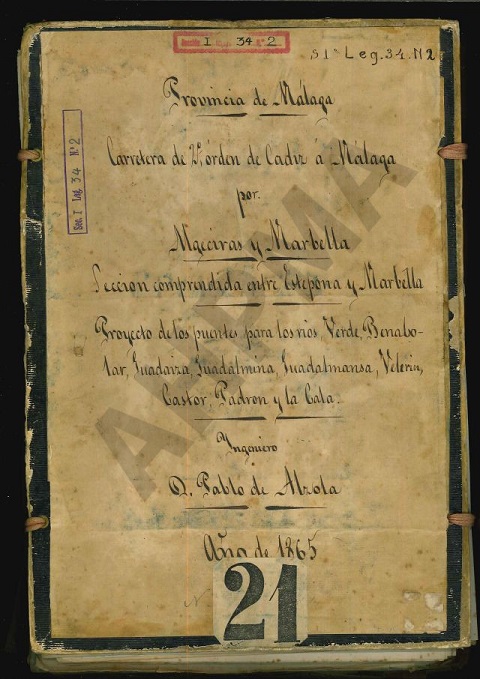 I 34 2
S 1ª Leg. 34. N 2
Sec. I Leg 34 Nº 2
Provincia de Málaga
Carretera de 2º orden de Cadiz á Málaga
por
Algeciras y Marbella
Seccion comprendida entre Estepona y Marbella
Proyecto de los puentes para los rios, Verde, Benabo-
lar, Guadaiza, Guadalmina, Guadalmansa, Velerin,
Castor, Padron y la Cala.
Ingeniero
D. Pablo de Alzola
Año de 1865
21
APPMA